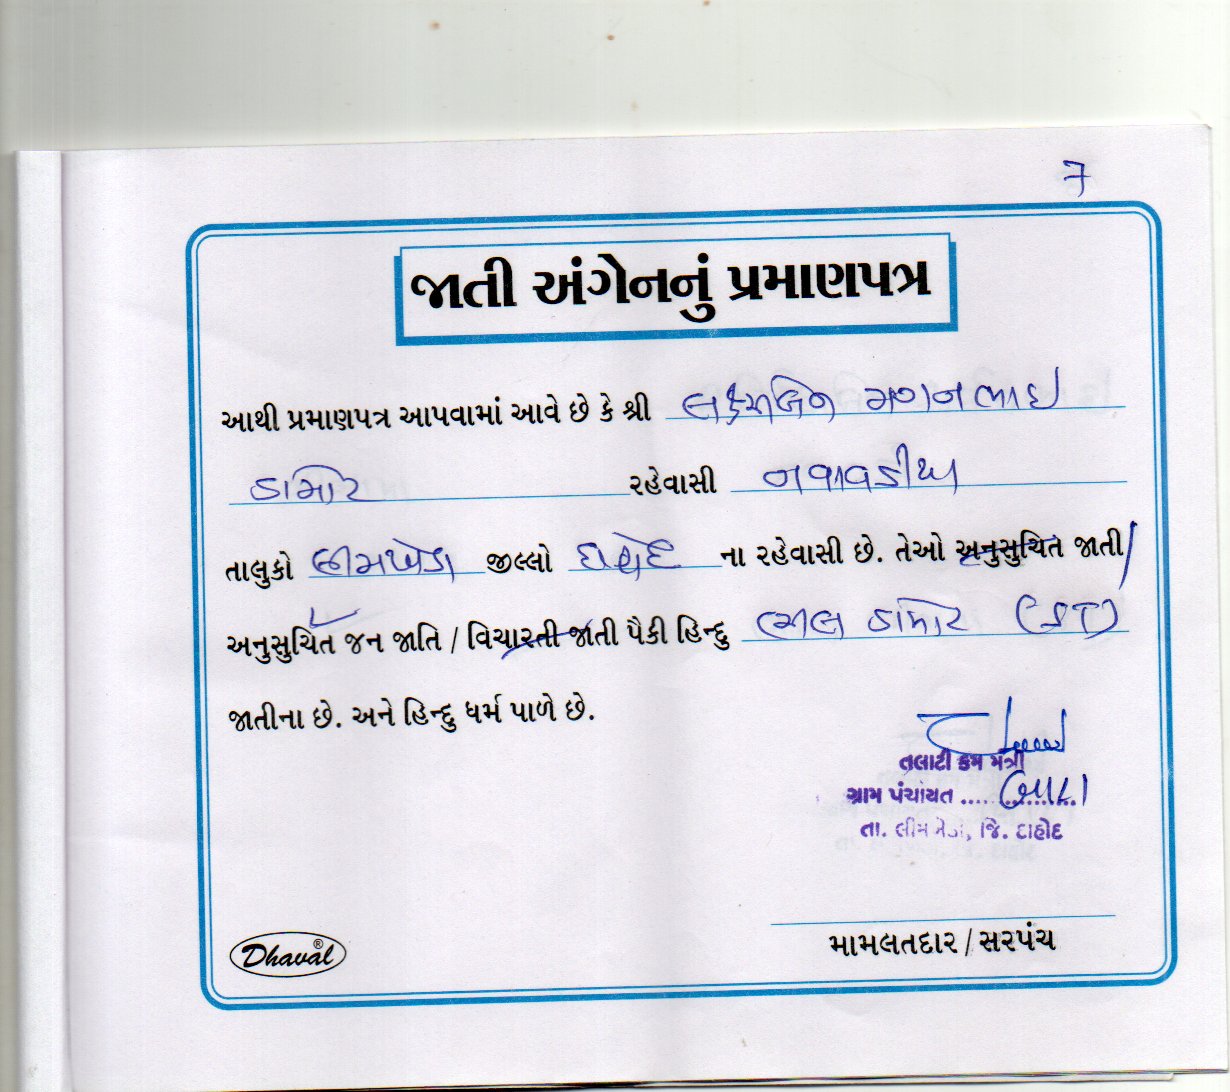 7
જાતી અંગેનનું પ્રમાણપત્ર
આથી પ્રમાણપત્ર આપવામાં આવે છે કે શ્રી મગનભાઇ
ડામોર રહેવાસી નવાવડીયા
તાલુકો લીમખેડા જીલ્લો દાહોદ ના રહેવાસી છે. તેઓ અનુસુચિત જાતી/
અનુસુચિત જન જાતિ / વિચારતી જાતી પૈકી હિન્દુ ભીલ ડામોર (ST)
જાતીના છે. અને હિન્દુ ધર્મ પાળે છે.
તલાટી કમ મંત્રી
ગ્રામ પંચાયત ..................
તા. લીમખેડા, જિ. દાહોદ
Dhaval®
મામલતદાર / સરપંચ